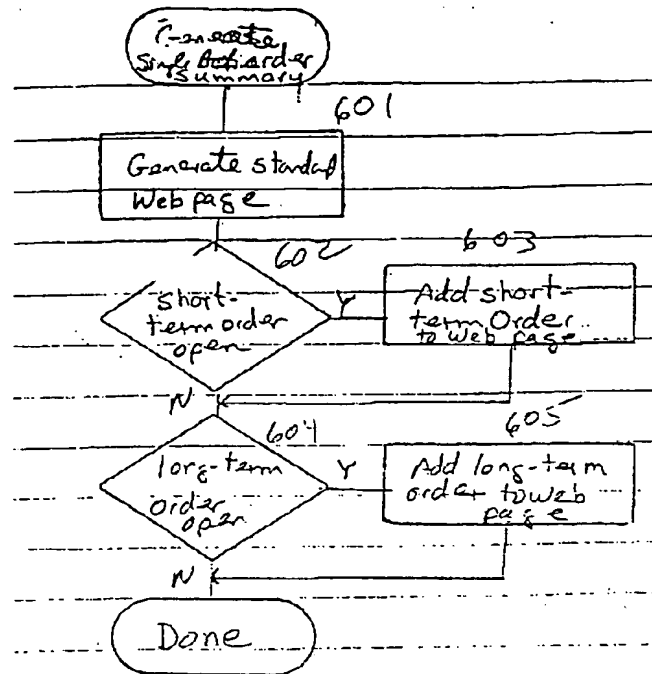 Generate
Single Action order
summary
601
Generate standard
Web page
602
603
short-
term order
open
Y
Add short-
term Order
to web page
N
604
605
long-term
order
open
Y
Add long-term
order to web
page
N
Done